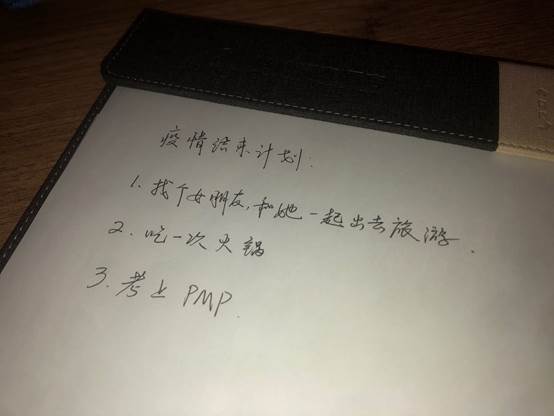 疫情结束计划:
1. 找个女朋友,和她一起出去旅游.
2. 吃一次火锅
3. 考上 PMP.